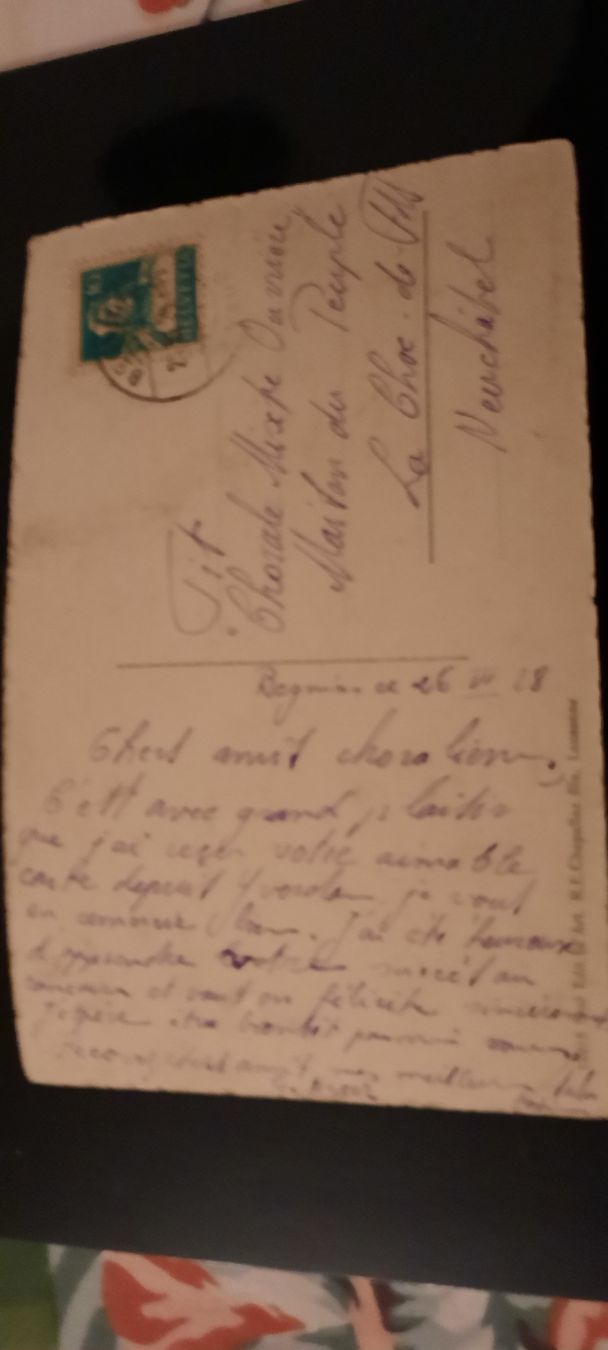 Begnins ce 26 VII 28
Chers amis choraliens.
C'est avec grand plaisir
que j'ai reçu votre aimable
carte depuis Yverdon je vous
en remercie bien. J'ai été heureux
d'apprendre votre succès au
concours et vous en félicite
J'espère être bientôt parmi vous
meilleures
Tit.
Chorale Mixte Ouvrière
Maison du Peuple
La Chx. de Fds
Neuchâtel
HELVETIA
10
Lausanne